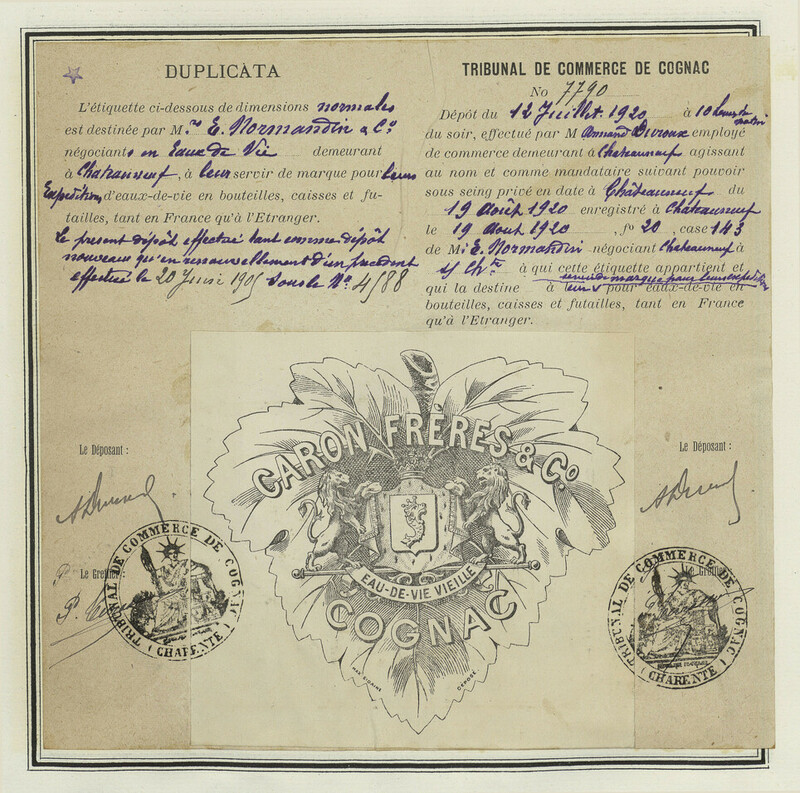 DUPLICATA
L'étiquette ci-dessous de dimensions normales
est destinée par M.rs E. Normandin & Co
négociants en Eaux de Vie demeurant
à Chateauneuf, à leur servir de marque pour leurs
Expéditions d'eaux-de-vie en bouteilles, caisses et fu-
tailles, tant en France qu'à l'Etranger.
Le présent dépôt effectué tant comme dépôt
nouveau qu'en renouvellement d'un précédent
effectué le 20 Juin 1905 sous le No 4188
TRIBUNAL DE COMMERCE DE COGNAC
No 7790
Dépôt du 12 Juillet 1920 à 10 heures du matin
du soir, effectué par M Armand Duroux employé
de commerce demeurant à Chateauneuf agissant
au nom et comme mandataire suivant pouvoir
sous seing privé en date à Châteauneuf du
19 Août 1920 enregistré à Châteauneuf
le 19 Aout 1920, fo 20, case 143
de M. E. Normandin négociant Chateauneuf à
s/ Chte à qui cette étiquette appartient et
qui la destine à leur servir de marque pour leurs expéditions pour eaux-de-vie en
bouteilles, caisses et futailles, tant en France
qu'à l'Etranger.
CARON FRÈRES & Co
EAU-DE-VIE VIEILLE
COGNAC
DÉPOSÉ
Le Déposant :
Le Greffier
TRIBUNAL DE COMMERCE DE COGNAC
(CHARENTE)
Le Déposant :
Le Greffier
TRIBUNAL DE COMMERCE DE COGNAC
(CHARENTE)